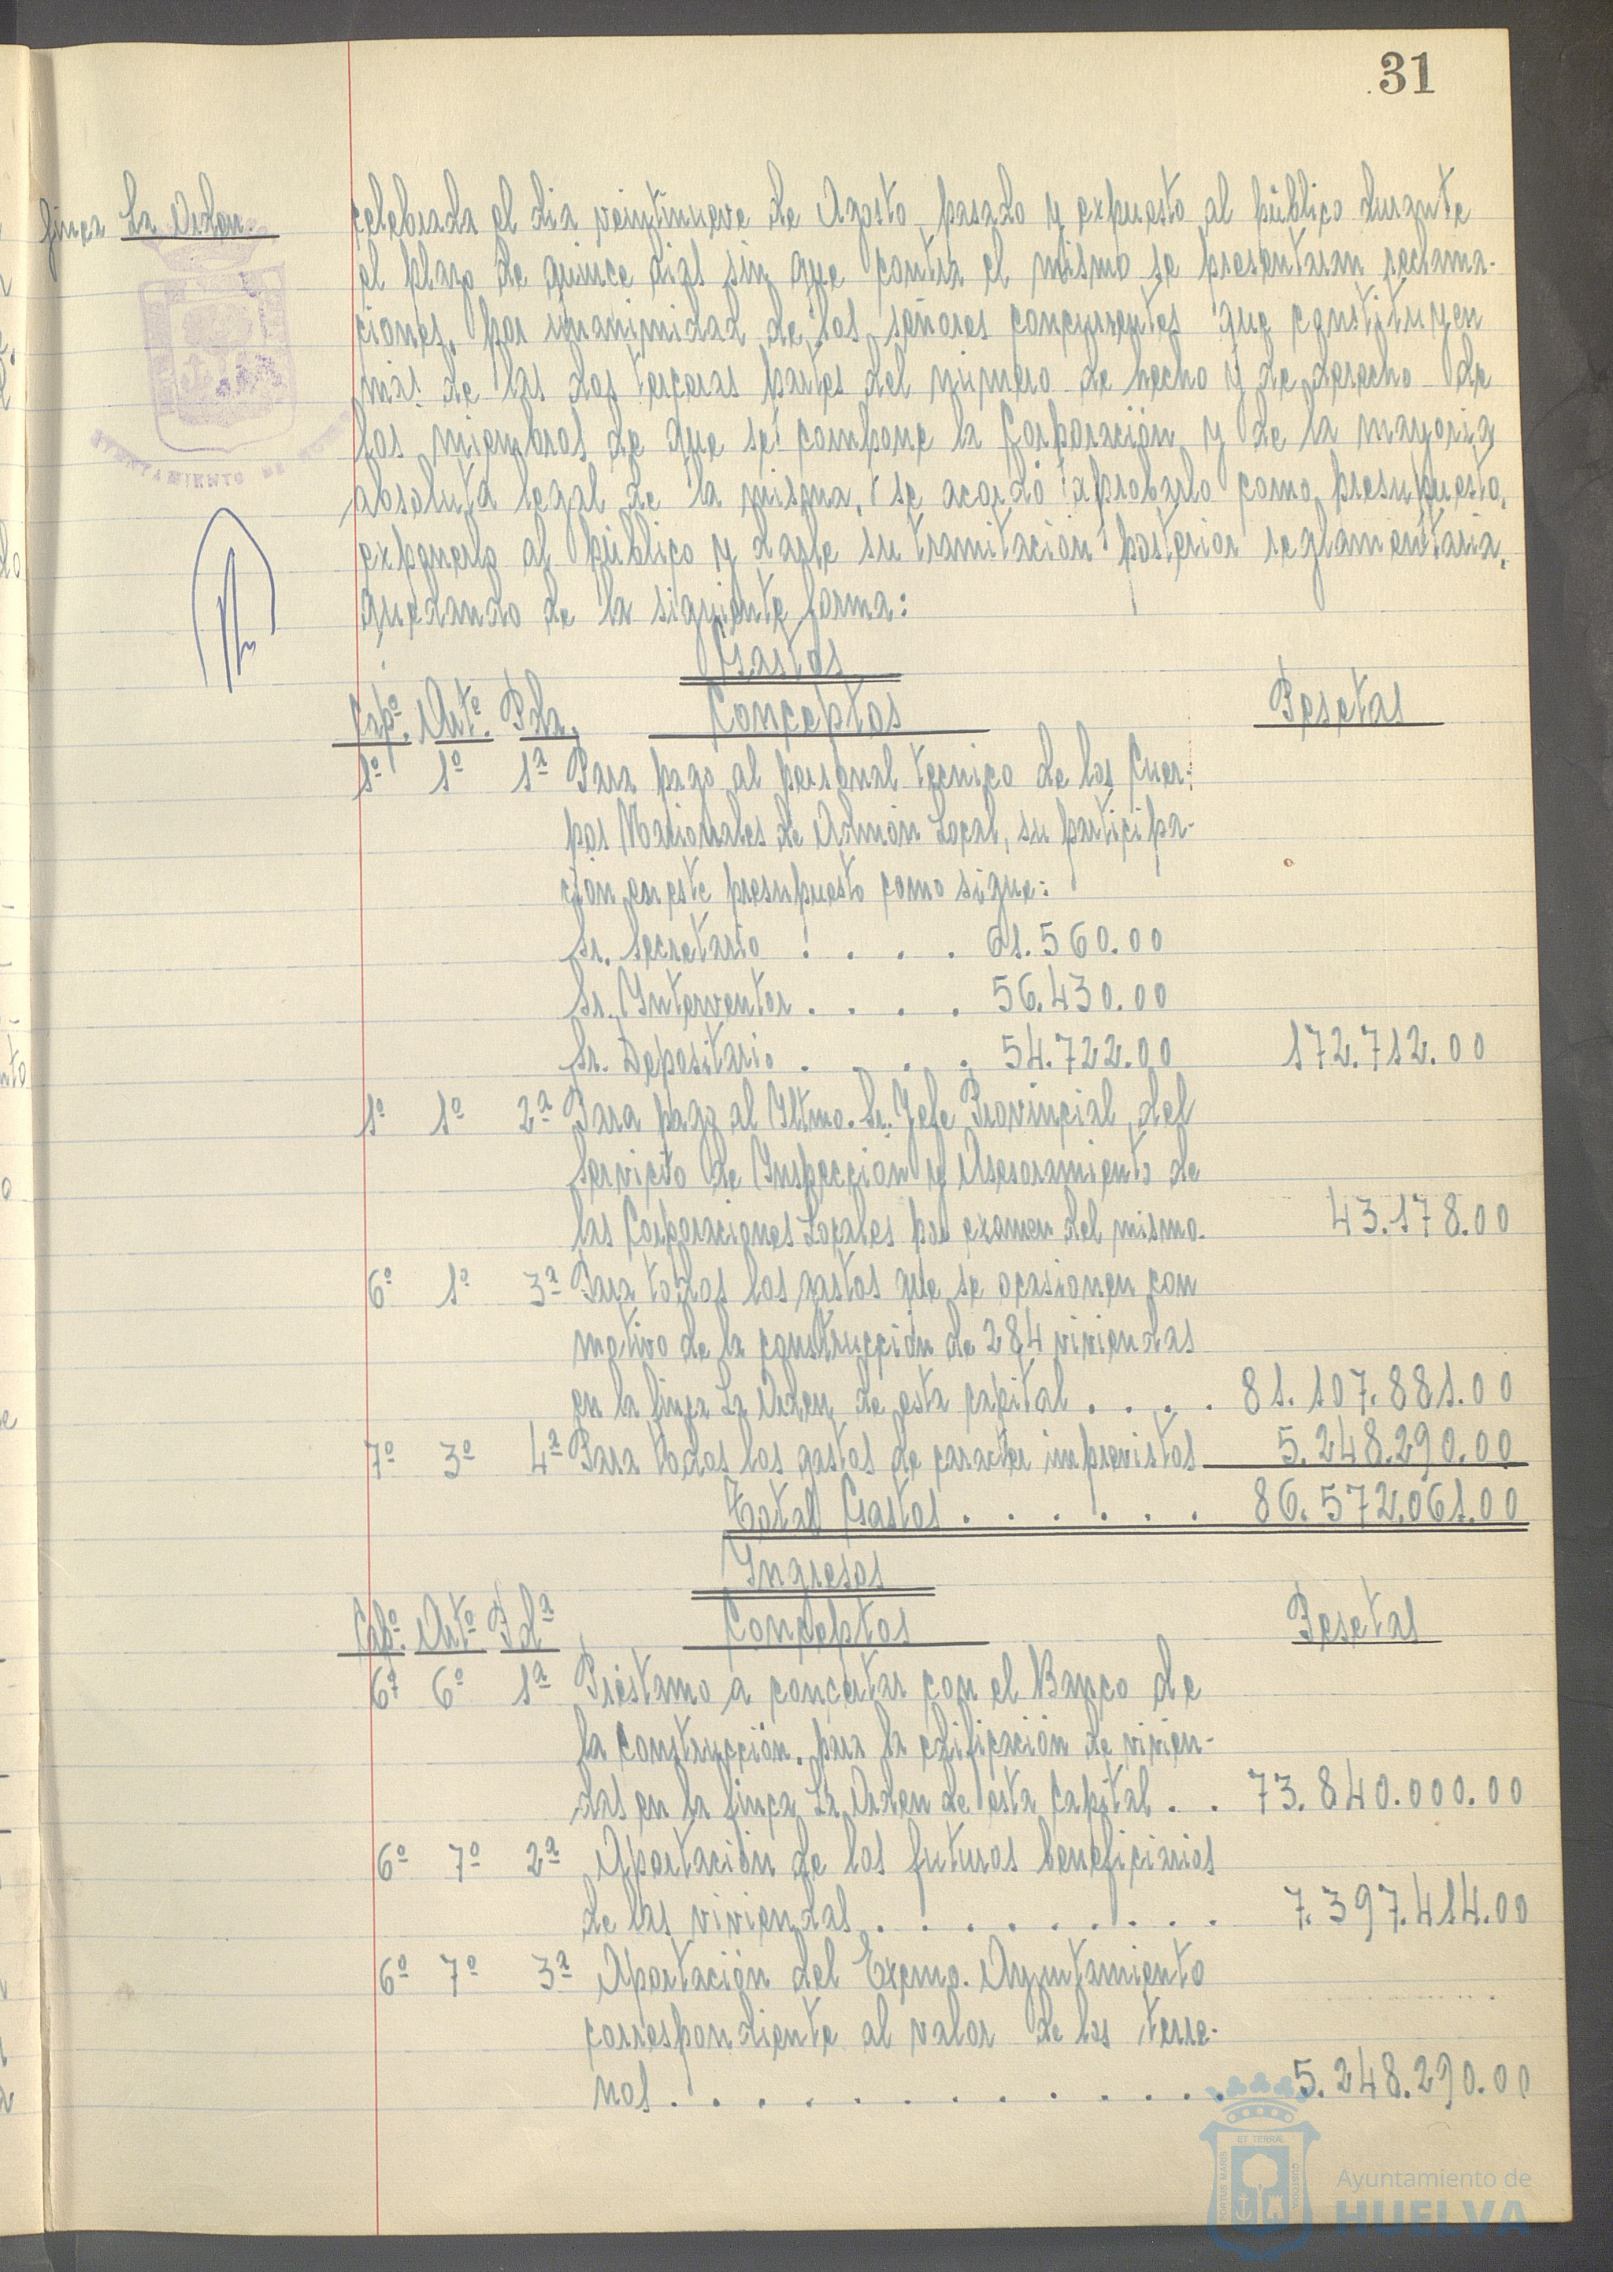 31
finca La Orden.
celebrada el dia veintinueve de Agosto pasado y expuesto al público durante
el plazo de quince dias sin que contra el mismo se presentaran reclama-
ciones, por unanimidad de los señores concurrentes que constituyen
mas de las dos terceras partes del número de hecho y de derecho de
los miembros de que se compone la Corporación y de la mayoria
absoluta legal de la misma, se acordó aprobarlo como presupuesto,
exponerlo al público y darle su tramitación posterior reglamentaria,
quedando de la siguiente forma:
Gastos
Capº. Artº. Pda. Conceptos Pesetas
1º 1º 1ª Para pago al personal tecnico de los Cuer-
pos Nacionales de Admón Local, su participa-
ción en este presupuesto como sigue:
Sr. Secretario . . . . 61.560.00
Sr. Interventor . . . . 56.430.00
Sr. Depositario . . . . 54.722.00 172.712.00
1º 1º 2ª Para pago al Iltmo. Sr. Jefe Provincial del
Servicio de Inspección y Asesoramiento de
las Corporaciones Locales por examen del mismo. 43.178.00
6º 1º 3ª Para todos los gastos que se ocasionen con
motivo de la construcción de 284 viviendas
en la finca La Orden de esta capital . . . . 81.107.881.00
7º 3º 4ª Para todos los gastos de caracter imprevistos 5.248.290.00
Total Gastos . . . . . . 86.572.061.00
Ingresos
Capº. Artº Pdª Conceptos Pesetas
6º 6º 1ª Préstamo a concertar con el Banco de
la Construcción, para la edificación de vivien-
das en la finca La Orden de esta Capital . . 73.840.000.00
6º 7º 2ª Aportación de los futuros beneficiarios
de las viviendas . . . . . . . . 7.397.414.00
6º 7º 3ª Aportación del Excmo. Ayuntamiento
correspondiente al valor de los terre-
nos . . . . . . . . . . . . 5.248.290.00
Ayuntamiento de
HUELVA